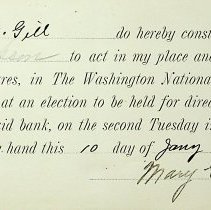 Gill do hereby const
to act in my place and
res, in The Washington National
at an election to be held for direc
id bank, on the second Tuesday in
hand this 10 day of Jany
Mary